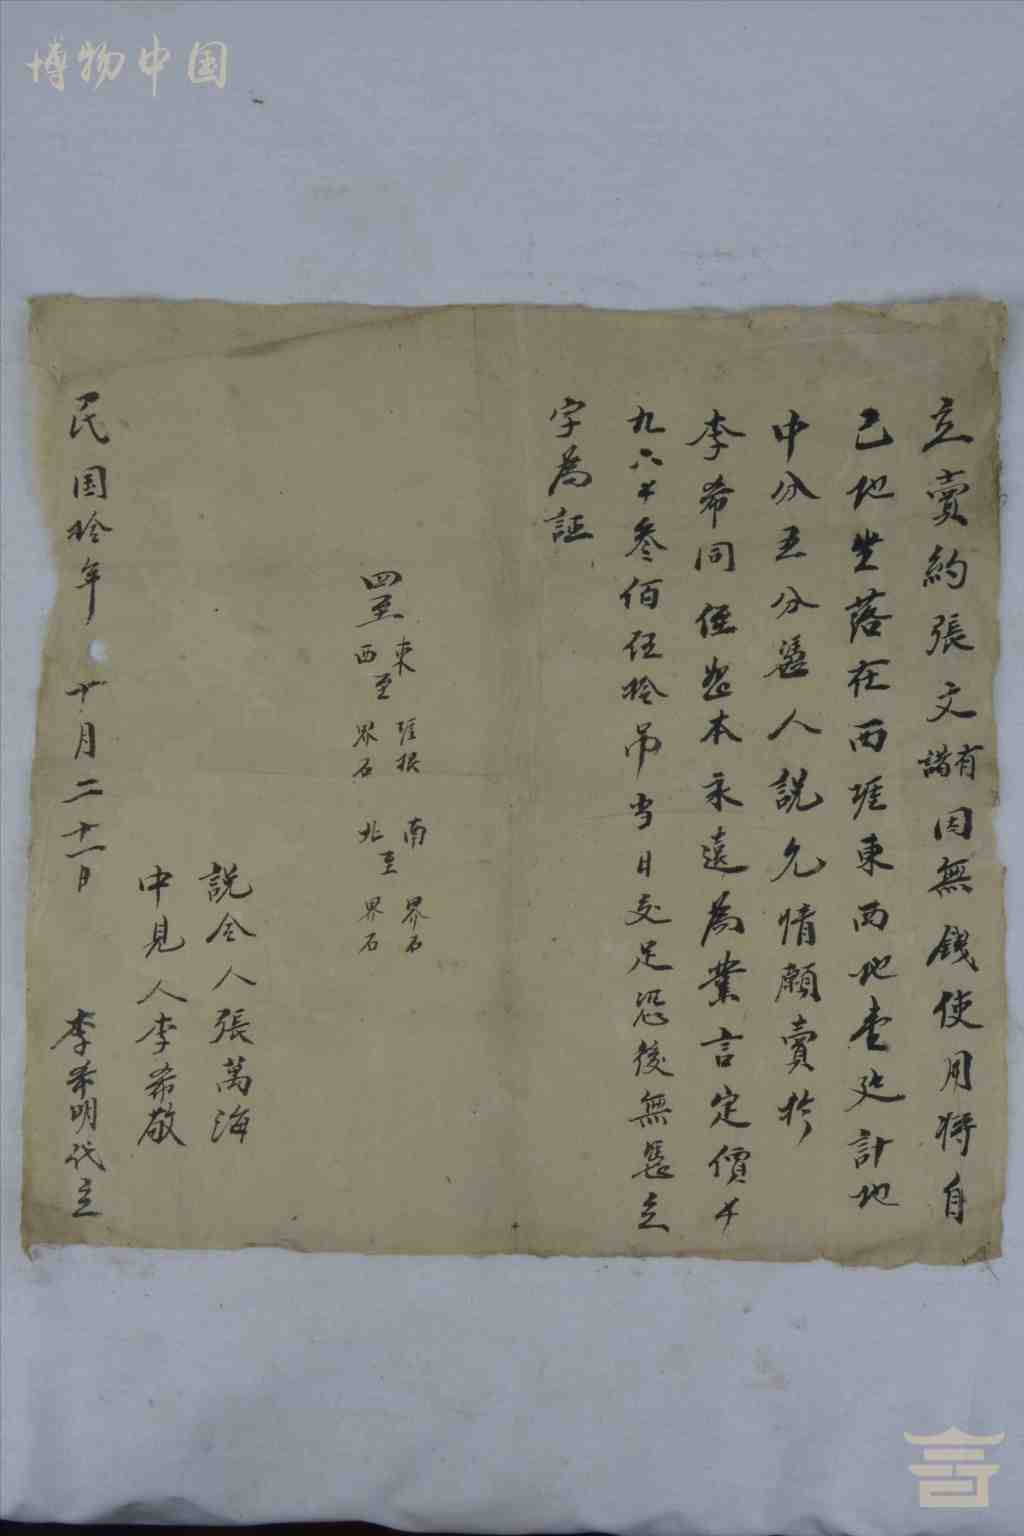 博物中国
立賣約張文有講因無錢使用将自
己地坐落在西崖東西地壹处計地
中分五分憑人説允情願賣於
李希同侄 本永遠為業言定價才
九六才叁佰伍拾吊当日交足恐後無憑立
字為証
四至 東 崖根 南 界石
西至 界石 北至 界石
説合人張萬海
中見人李希敬
民国拾年十月二十一日 李希明代立